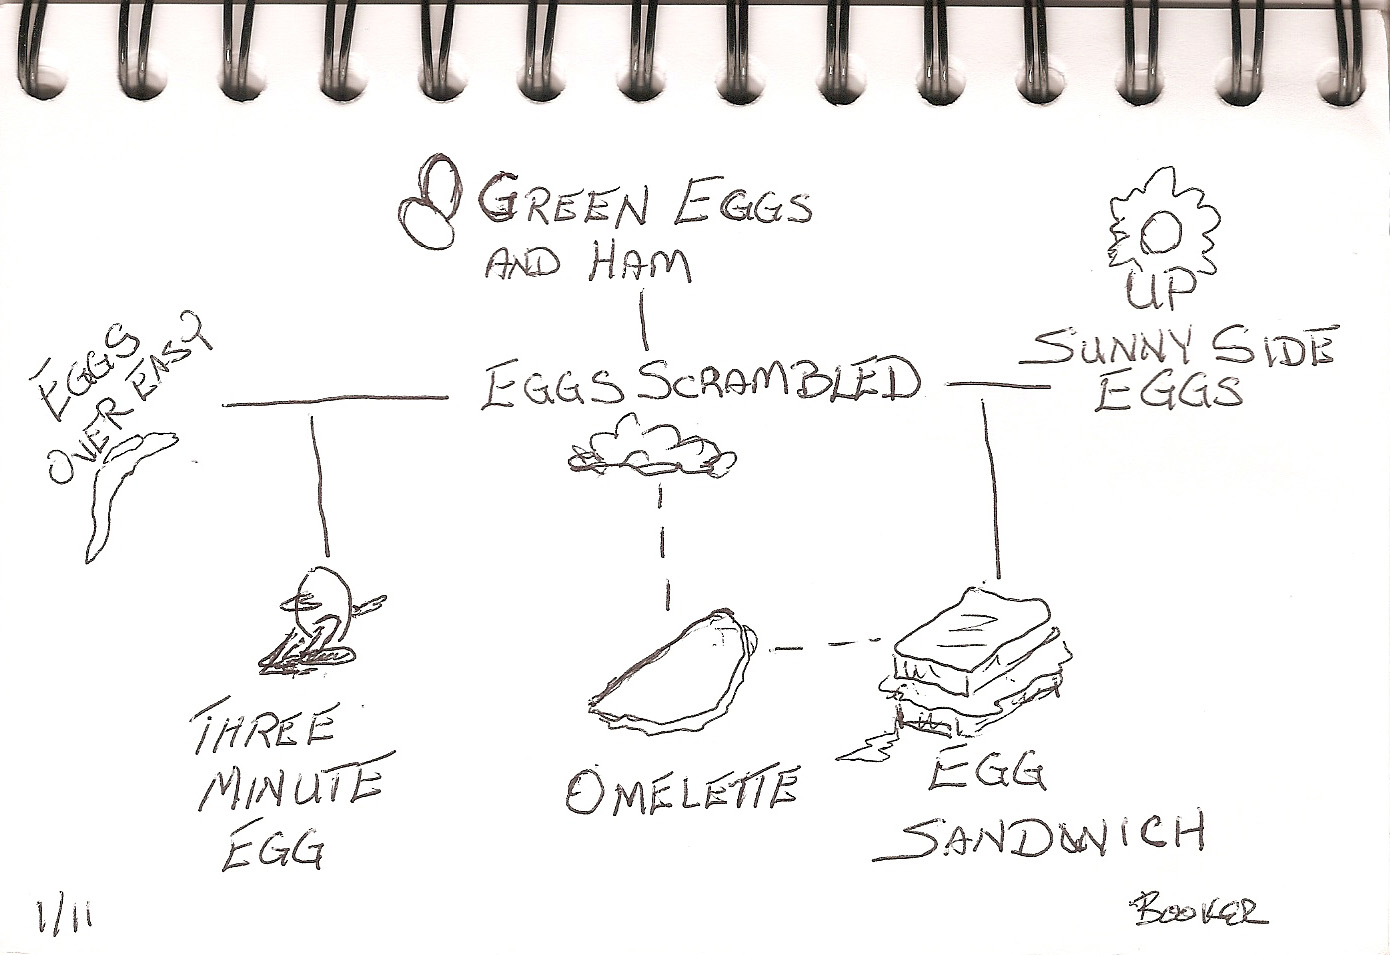 GREEN EGGS
AND HAM
UP
SUNNY SIDE
EGGS
EGGS
OVER EASY
EGGS SCRAMBLED
THREE
MINUTE
EGG
OMELETTE
EGG
SANDWICH
1/11
BOOKER